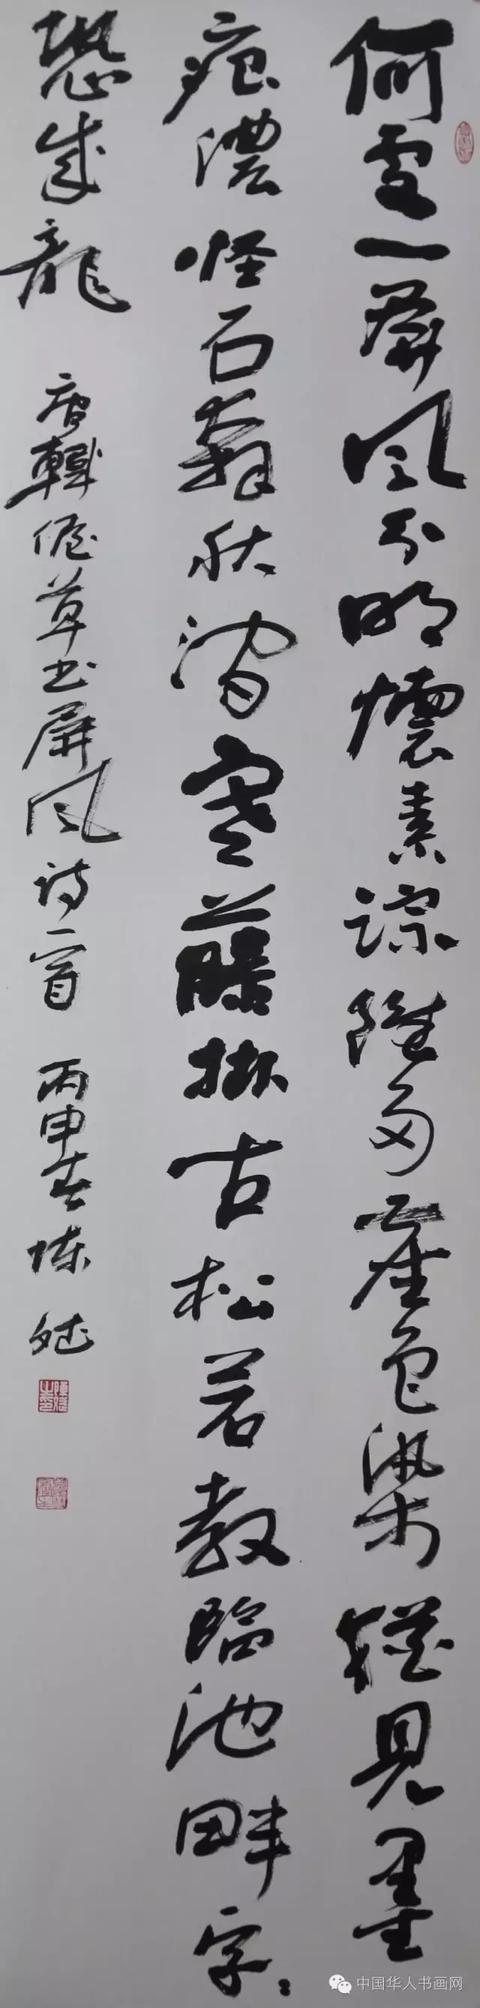 何處一屏風分明懷素踪雖多塵色染猶見墨
痕濃怪石奔秋澗寒藤掛古松若教臨池畔字〻
恐成龍 唐韓偓草书屏風詩一首 丙申春陳
中国华人书画网